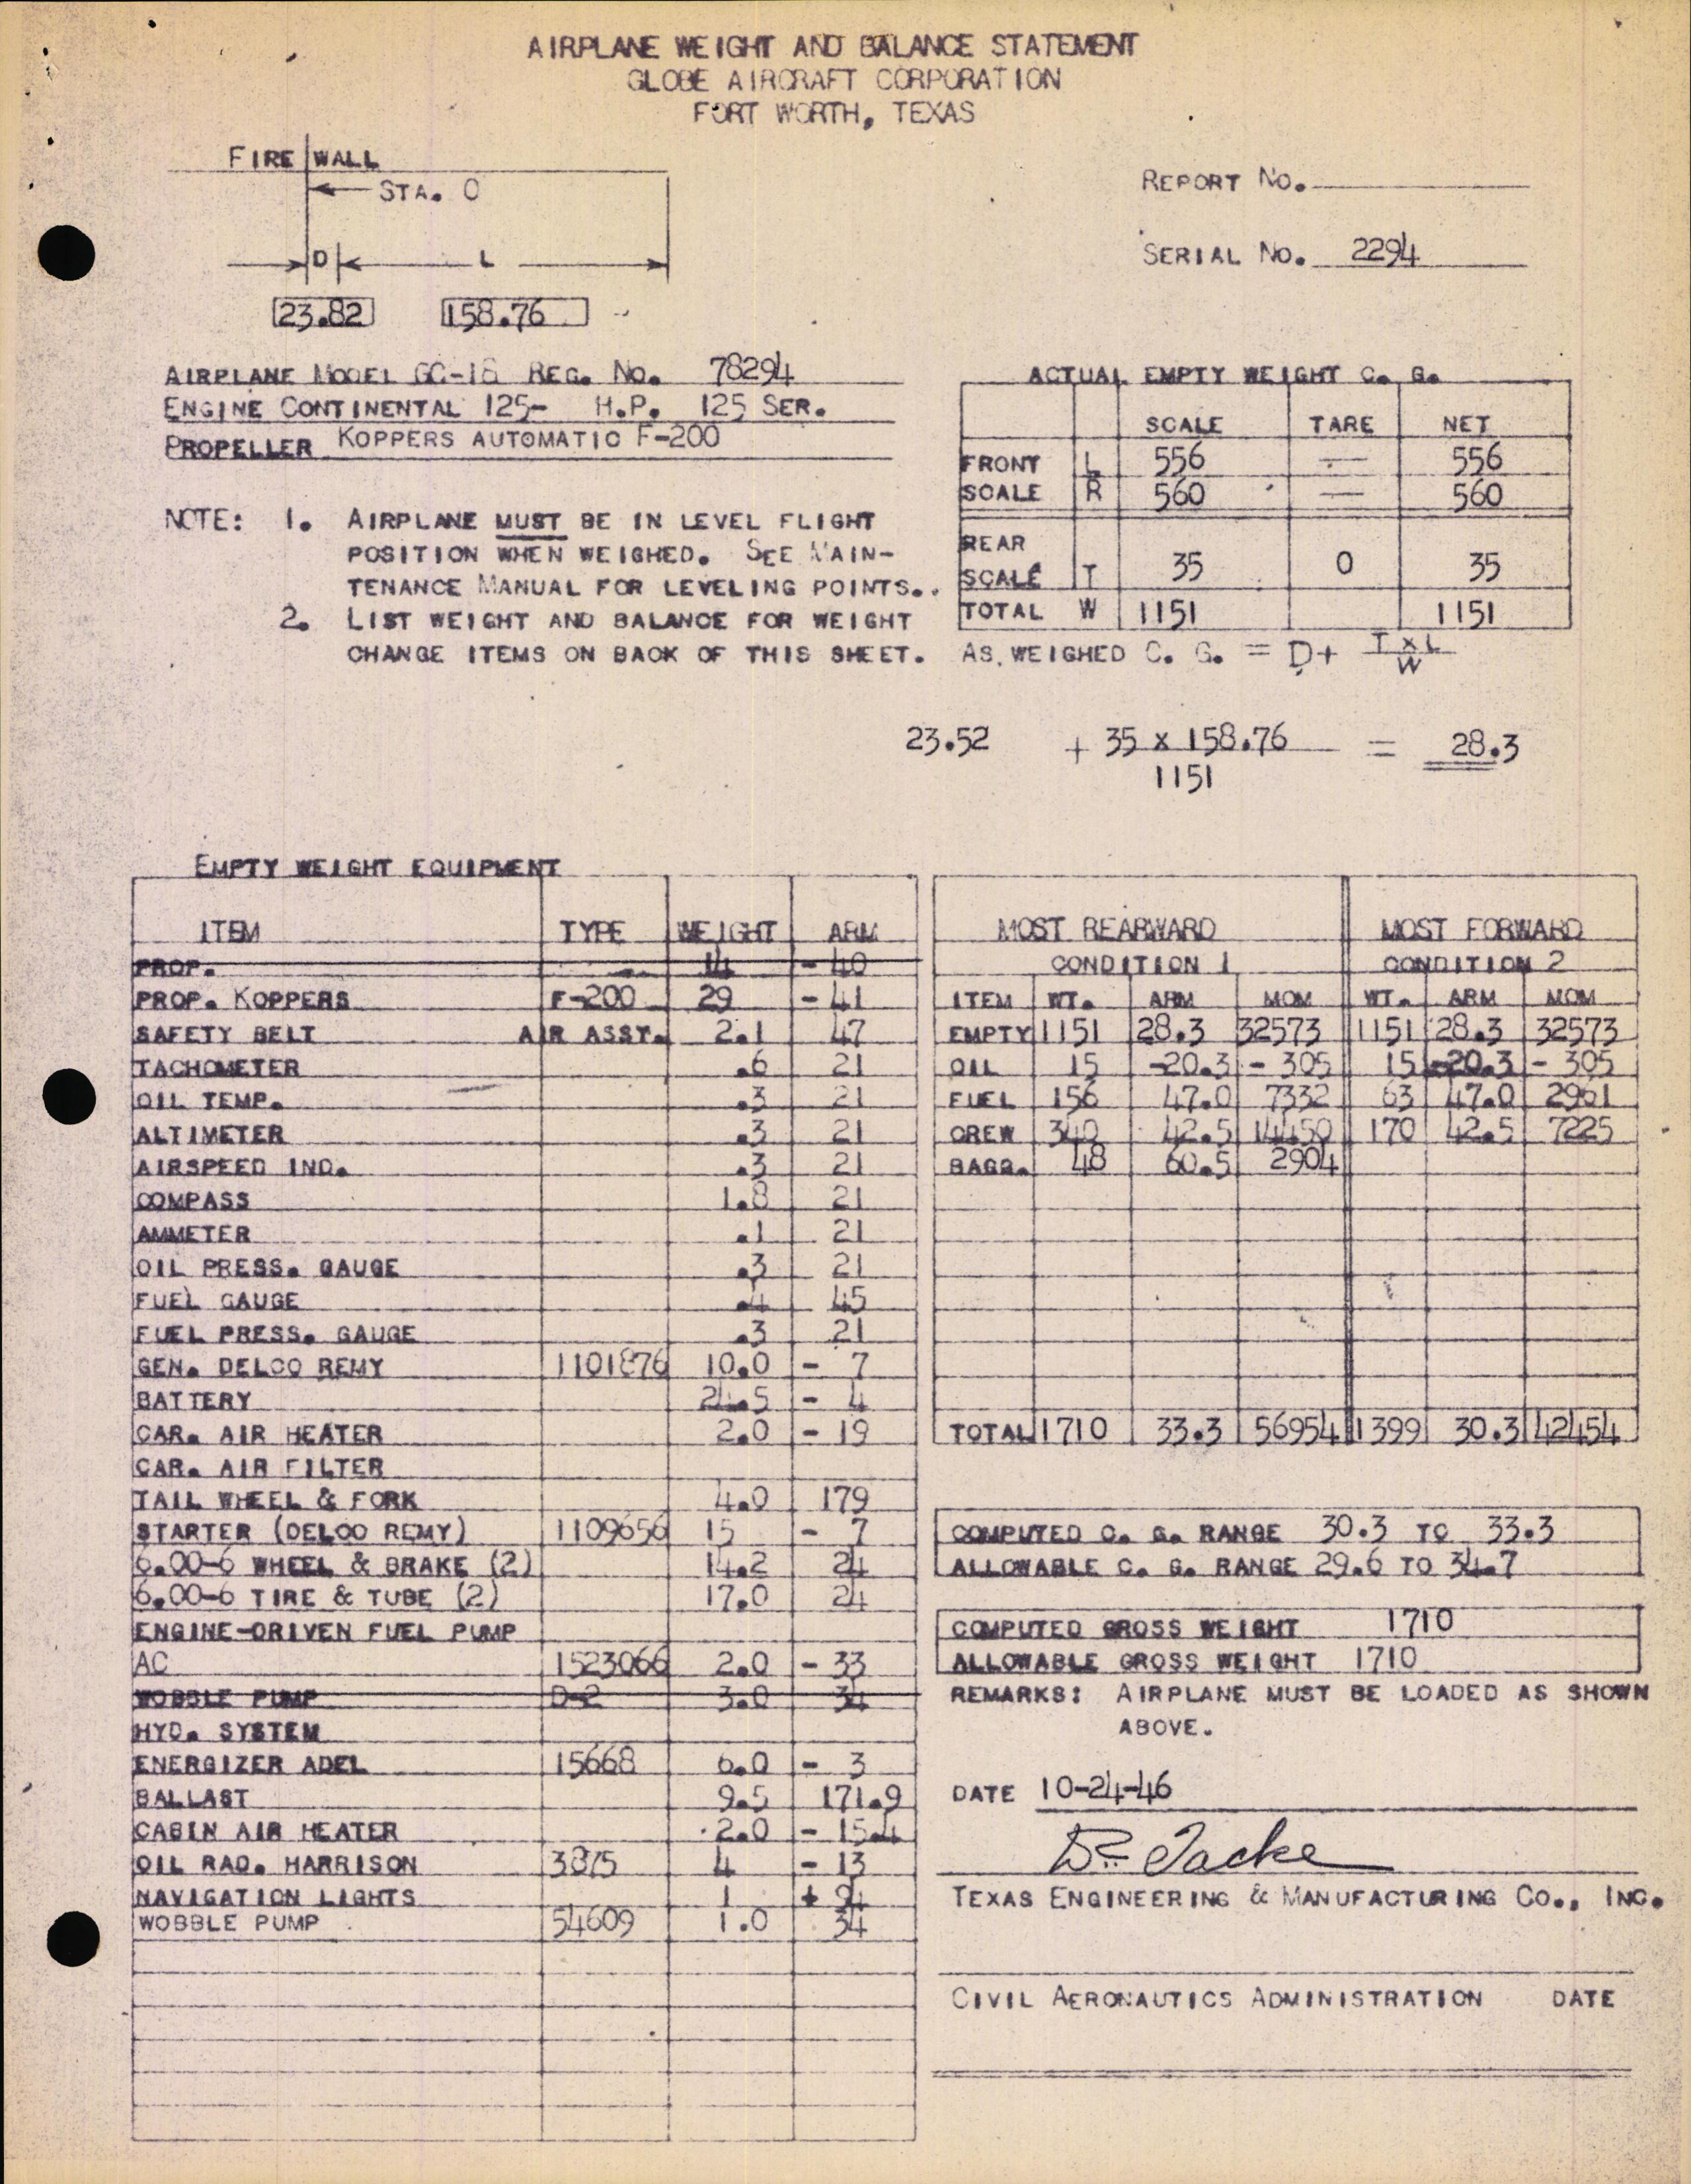 AIRPLANE WEIGHT AND BALANCE STATEMENT
GLOBE AIRCRAFT CORPORATION
FORT WORTH, TEXAS
FIRE WALL
STA. 0
D L
23.82 158.76
REPORT NO.
SERIAL NO. 2294
AIRPLANE MODEL GC-1B REG. NO. 78294
ENGINE CONTINENTAL 125- H.P. 125 SER.
PROPELLER KOPPERS AUTOMATIC F-200
NOTE: 1. AIRPLANE MUST BE IN LEVEL FLIGHT
POSITION WHEN WEIGHED. SEE MAIN-
TENANCE MANUAL FOR LEVELING POINTS.
2. LIST WEIGHT AND BALANCE FOR WEIGHT
CHANGE ITEMS ON BACK OF THIS SHEET.
ACTUAL EMPTY WEIGHT C. G.
SCALE TARE NET
FRONT L 556 — 556
SCALE R 560 — 560
REAR
SCALE T 35 0 35
TOTAL W 1151 1151
AS WEIGHED C. G. = D + T X L
W
23.52 + 35 X 158.76 = 28.3
1151
EMPTY WEIGHT EQUIPMENT
ITEM TYPE WEIGHT ARM
PROP. 14 - 40
PROP. KOPPERS F-200 29 - 41
SAFETY BELT AIR ASST. 2.1 47
TACHOMETER .6 21
OIL TEMP. .3 21
ALTIMETER .3 21
AIRSPEED IND. .3 21
COMPASS 1.8 21
AMMETER .1 21
OIL PRESS. GAUGE .3 21
FUEL GAUGE .4 45
FUEL PRESS. GAUGE .3 21
GEN. DELCO REMY 1101876 10.0 - 7
BATTERY 24.5 - 4
CAR. AIR HEATER 2.0 - 19
CAR. AIR FILTER
TAIL WHEEL & FORK 4.0 179
STARTER (DELCO REMY) 1109656 15 - 7
6.00-6 WHEEL & BRAKE (2) 14.2 24
6.00-6 TIRE & TUBE (2) 17.0 24
ENGINE-DRIVEN FUEL PUMP
AC 1523066 2.0 - 33
WOBBLE PUMP D-2 3.0 34
HYD. SYSTEM
ENERGIZER ADEL 15668 6.0 - 3
BALLAST 9.5 171.9
CABIN AIR HEATER 2.0 - 15.4
OIL RAD. HARRISON 3875 4 - 13
NAVIGATION LIGHTS 1 + 94
WOBBLE PUMP 54609 1.0 34
MOST REARWARD MOST FORWARD
CONDITION 1 CONDITION 2
ITEM WT. ARM MOM WT. ARM MOM
EMPTY 1151 28.3 32573 1151 28.3 32573
OIL 15 -20.3 - 305 15 -20.3 - 305
FUEL 156 47.0 7332 63 47.0 2961
CREW 340 42.5 14450 170 42.5 7225
BAGG. 48 60.5 2904
TOTAL 1710 33.3 56954 1399 30.3 42454
COMPUTED C. G. RANGE 30.3 TO 33.3
ALLOWABLE C. G. RANGE 29.6 TO 34.7
COMPUTED GROSS WEIGHT 1710
ALLOWABLE GROSS WEIGHT 1710
REMARKS: AIRPLANE MUST BE LOADED AS SHOWN
ABOVE.
DATE 10-24-46
TEXAS ENGINEERING & MANUFACTURING CO., INC.
CIVIL AERONAUTICS ADMINISTRATION DATE